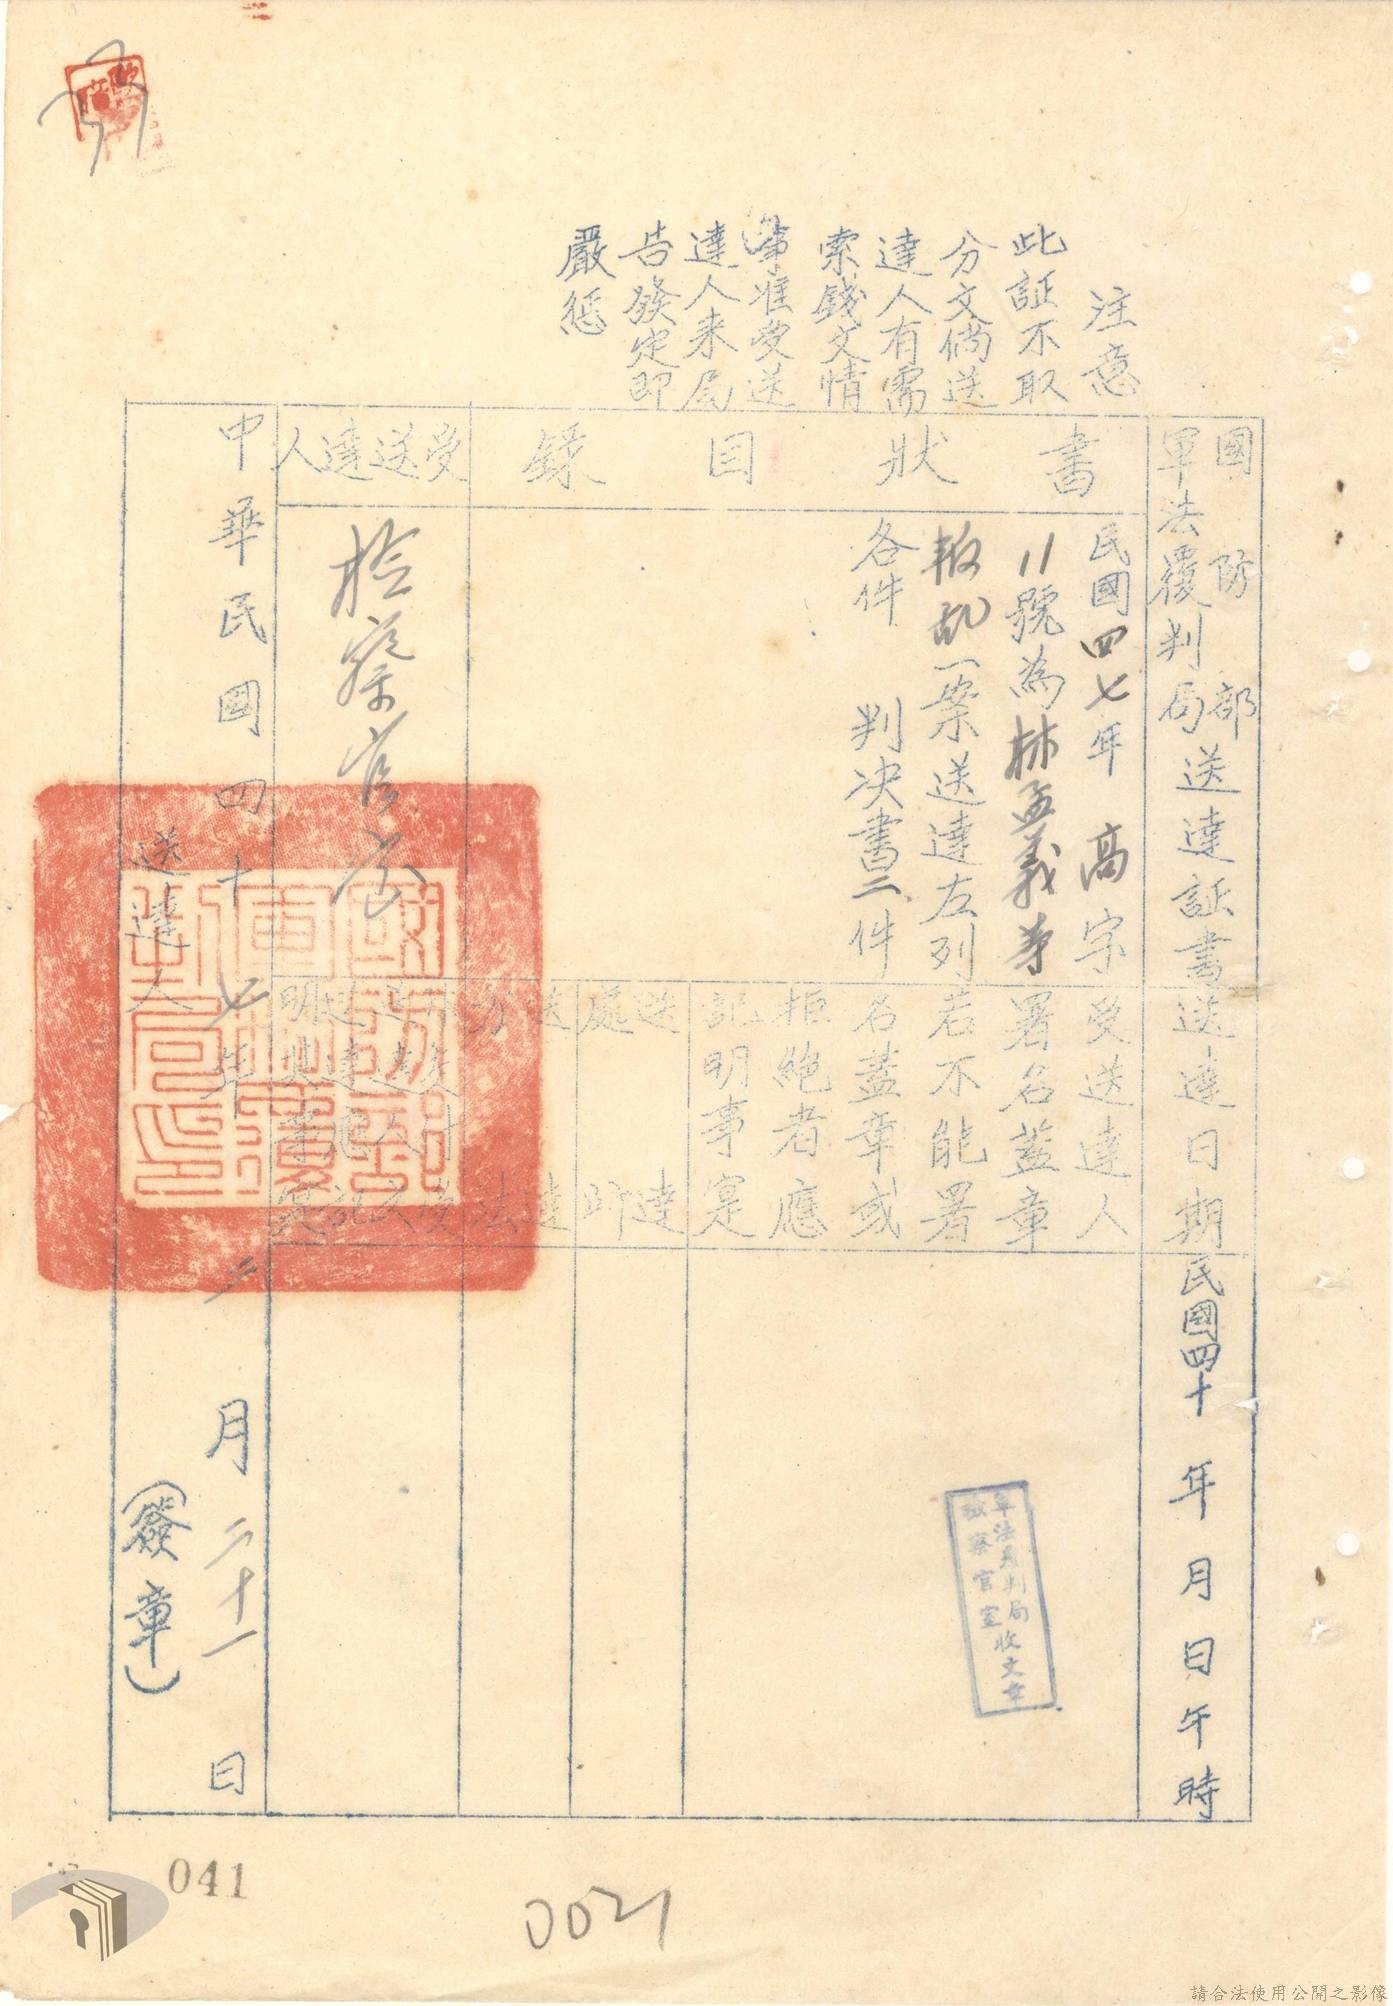 注意
此証不取
分文倘送
達人有需
索錢文情
事准受送
達人来局
告發定即
嚴懲
國防部
軍法覆判局送達証書
送達日期
民國四十年月日午時
書狀目錄
民國四七年高字
11號為林孟義等
叛乱一案送達左列
各件 判决書二件
受送達人
署名蓋章
若不能署
名蓋章或
拒絶者應
記明事寔
軍法覆判局
檢察官室收文章
送達處所
送達方法
受送達人
檢察官室
中華民國四十七年二月二十一日
送達人(簽章)
041
0021
請合法使用公開之影像